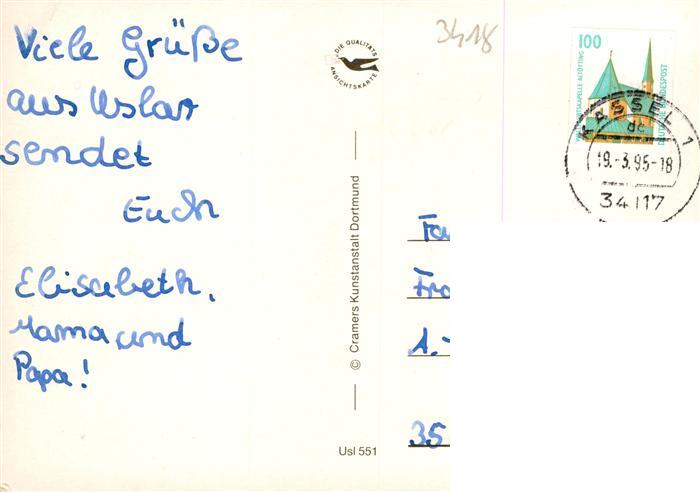 Viele Grüße
aus Uslar
sendet
Euch
Elisabeth,
Mama und
Papa!
DIE QUALITÄTS
ANSICHTSKARTE
3418
© Cramers Kunstanstalt Dortmund
Usl 551
100
WALLFAHRTSKAPELLE ALTÖTTING
DEUTSCHE BUNDESPOST
KASSEL 1
dc
19.-3.95-18
34117
Fa
Fra
1.-
35